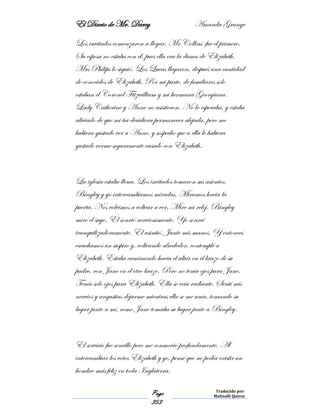 El Diario de Mr. Darcy Amanda Grange
Los invitados comenzaron a llegar. Mr Collins fue el primero.
Su esposa no estaba con él, pues ella era la dama de Elizabeth.
Mrs Philips lo siguió. Los Lucas llegaron, después una cantidad
de conocidos de Elizabeth. Por mi parte, de familiares solo
estaban el Coronel Fitzwilliam y mi hermana Georgiana.
Lady Catherine y Anne no asistieron. No lo esperaba, y estaba
aliviado de que mi tía decidiera permanecer alejada, pero me
hubiera gustado ver a Anne, y sospecho que a ella le hubiera
gustado verme seguramente casado con Elizabeth.
La iglesia estaba llena. Los invitados tomaron sus asientos.
Bingley y yo intercambiamos miradas. Miramos hacia la
puerta. Nos volvimos a voltear a ver. Mire mi reloj. Bingley
miró el suyo. El sonrió nerviosamente. Yo sonreí
tranquilizadoramente. El asintió. Junte mis manos. Y entonces
escuchamos un suspiro y, volteando alrededor, contemplé a
Elizabeth. Estaba caminando hacia el altar en el brazo de su
padre, con Jane en el otro brazo. Pero no tenía ojos para Jane.
Tenía solo ojos para Elizabeth. Ella se veía radiante. Sentí mis
nervios y angustias dejarme mientras ella se me unía, tomando su
lugar junto a mí, como Jane tomaba su lugar junto a Bingley.
El servicio fue sencillo pero me conmovió profundamente. Al
intercambiar los votos Elizabeth y yo, pensé que no podía existir un
hombre más feliz en toda Inglaterra.
Page
353
Traducido por:
Malinalli Quiroz